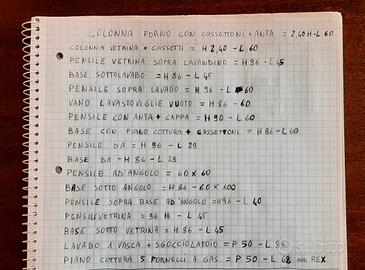 COLONNA FORNO CON CASSETTONI + ANTA = 2,40 H - L 60
COLONNA VETRINA + CASSETTI = H 2,40 - L 60
PENSILE VETRINA SOPRA LAVANDINO = H 96 - L 45
BASE SOTTOLAVABO = H 86 - L 45
PENSILE SOPRA LAVABO = H 96 - L 60
VANO LAVASTOVIGLIE VUOTO = H 86 - 60
PENSILE CON ANTA + CAPPA = H 90 - L 60
BASE CON PIANO COTTURA + CASSETTONI = H 86 - L 60
PENSILE DA = H 96 - L 29
BASE DA = H 86 - L 29
PENSILE AD'ANGOLO = 60 x 60
BASE SOTTO ANGOLO = H 86 - 60 x 100
PENSILE SOPRA BASE AD'ANGOLO = H96 - L 40
PENSILE VETRINA = 96 H - L 45
BASE SOTTO VETRINA = H 86 - L 45
LAVABO 1 VASCA + SGOCCIOLATOIO = P 50 - L 86
PIANO COTTURA 5 FORNELLI A GAS = P 50 - L 68 MOD. REX
subito